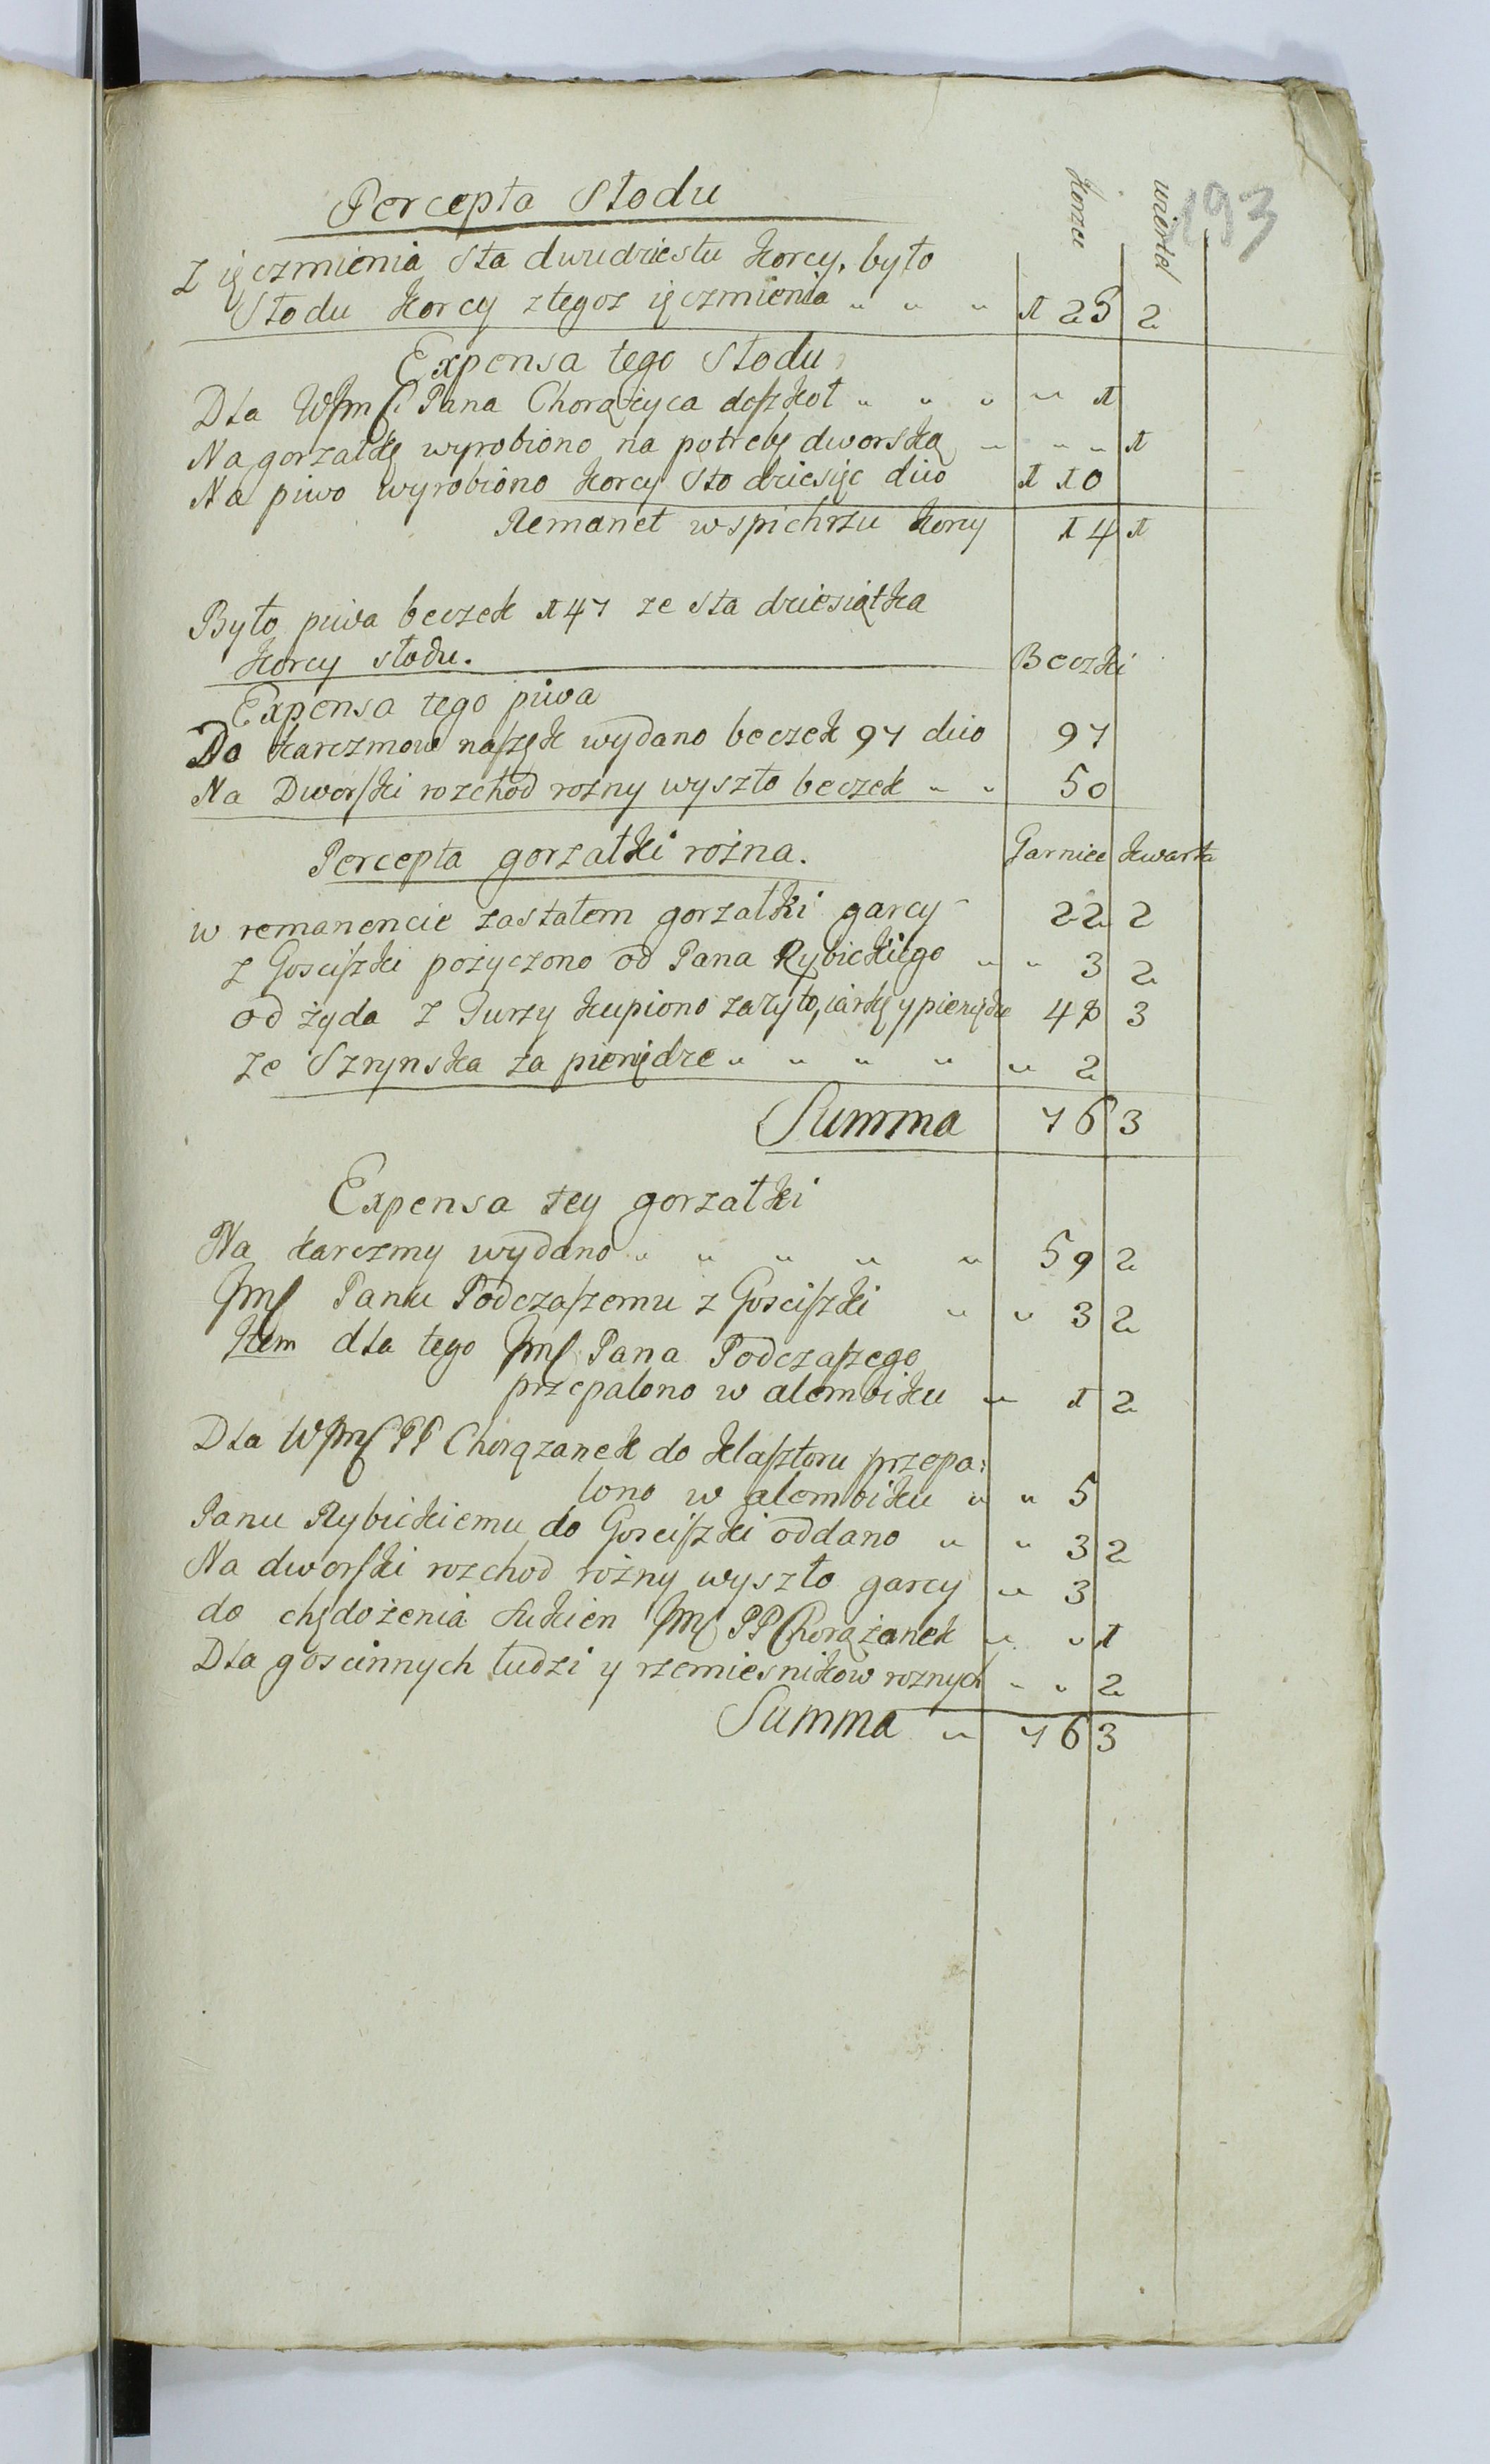 193
Percepta Słodu
Korce wiertel
Z ięczmienia sta dwudziestu korcy, było
Słodu korcy z tegoż ięczmienia " " " 125 2
Expensa tego Słodu
Dla WJmſ. Pana Chorążyca doſzkoł " " " " 1
Na gorzałkę wyrobiono na potrebę dworską " " " 1
Na piwo wyrobiono korcy sto dziesięc duo 110
Remanet w spichrzu korcy 14 1
Było piwa beczek 147 ze sta dziesiątka
korcy słodu. Beczki
Expensa tego piwa
Do karczmow naſzęk wydano beczek 97 duo 97
Na Dworſki rozchod rożny wyszło beczek " " 50
Percepta gorzałki rożna. Garniec kwarta
w remanencie zastałem gorzałki garcy 22 2
z Gosciſzki pożyczono od Pana Rybickiego " " 3 2
od żyda z Turzy kupiono za żyto, iarkę y pieniądze 48 3
ze Szrynska za pieniędze " " " " " 2
Summa 76 3
Expensa tey gorzałki
Na karczmy wydano " " " " " 59 2
Jmſ Panu Podczaſzemu z Gosciſzki " " 3 2
Item dla tego Jmſ Pana Podczaſzego
przepalono w alembiku " 1 2
Dla WJmſ PP Chorązanek do klaſztoru przepa:
lono w alembiku " " 5
Panu Rybickiemu do Gosciſzki oddano " " 3 2
Na dworſki rozchod rożny wyszło garcy " 3
do chędożenia sukien Jmſ PP Chorążanek " " 1
Dla goscinnych ludzi y rzemiesnikow roznych " " 2
Summa " 76 3